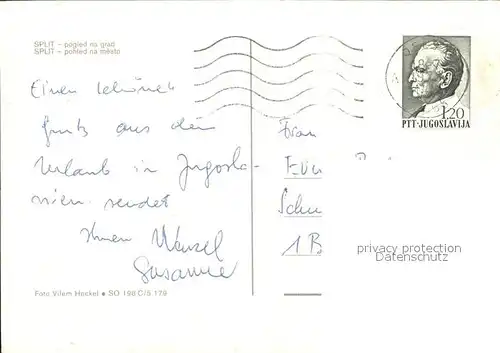 SPLIT - pogled na grad
SPLIT - pohled na město
Einen schönen
Gruß aus dem
Urlaub in Jugosla-
wien sendet
Ihnen Wenzel
Susanne
Foto Vilem Heckel ● SO 198 C/5 179
1.20
PTT-JUGOSLAVIJA
Frau
Schu
1 B
privacy protection
Datenschutz